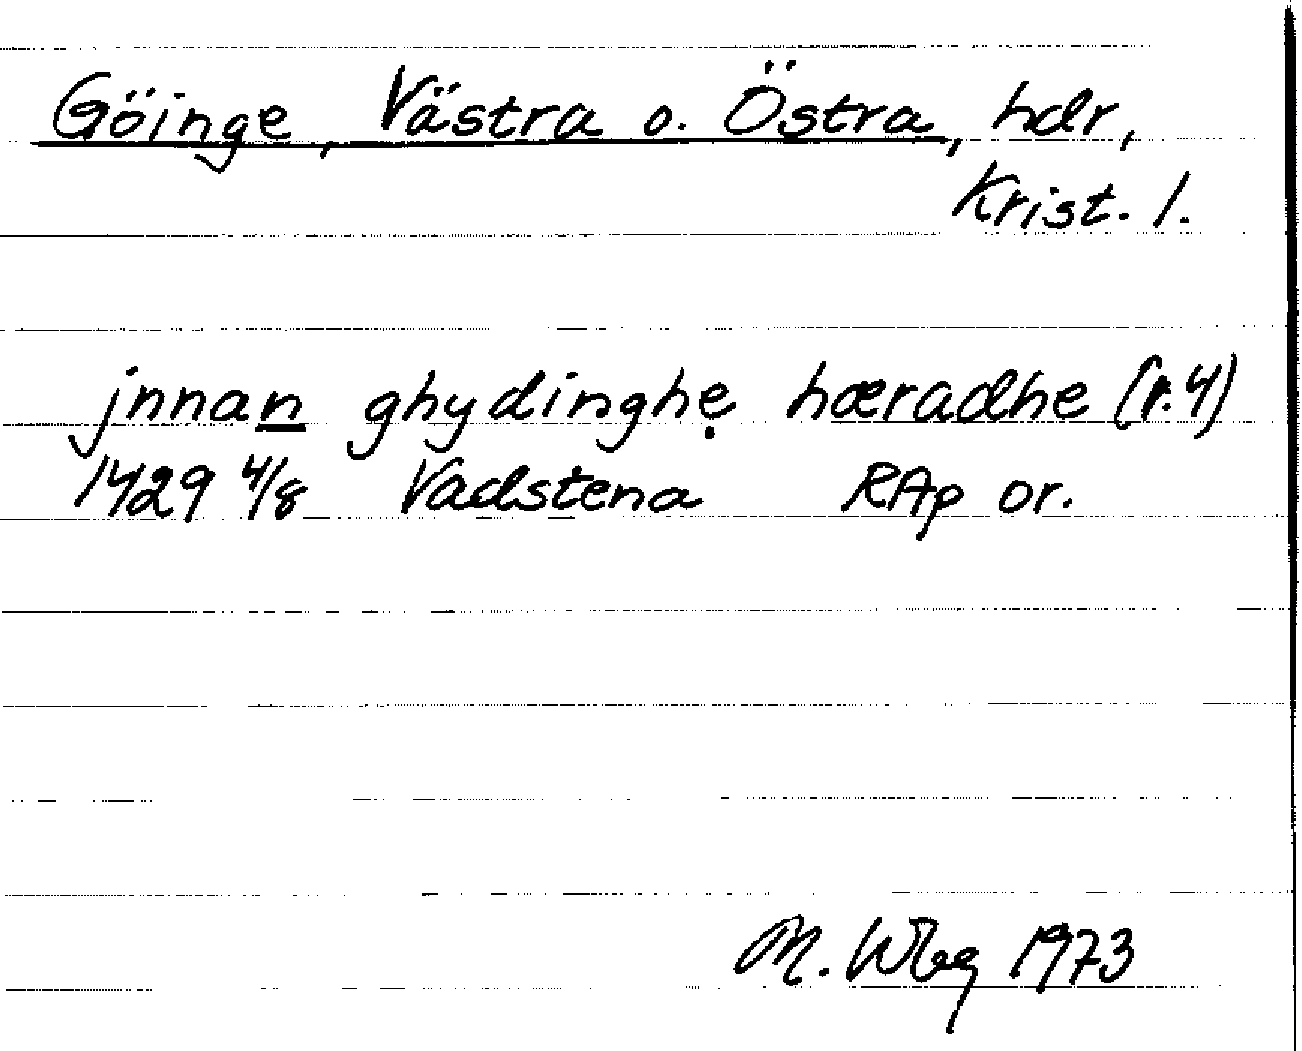 Göinge, Västra o. Östra, hdr,
Krist. l.
jnnan ghydinghẹ hæradhe (r.4)
1429 4/8 Vadstena RAp or.
M. Wbg 1973